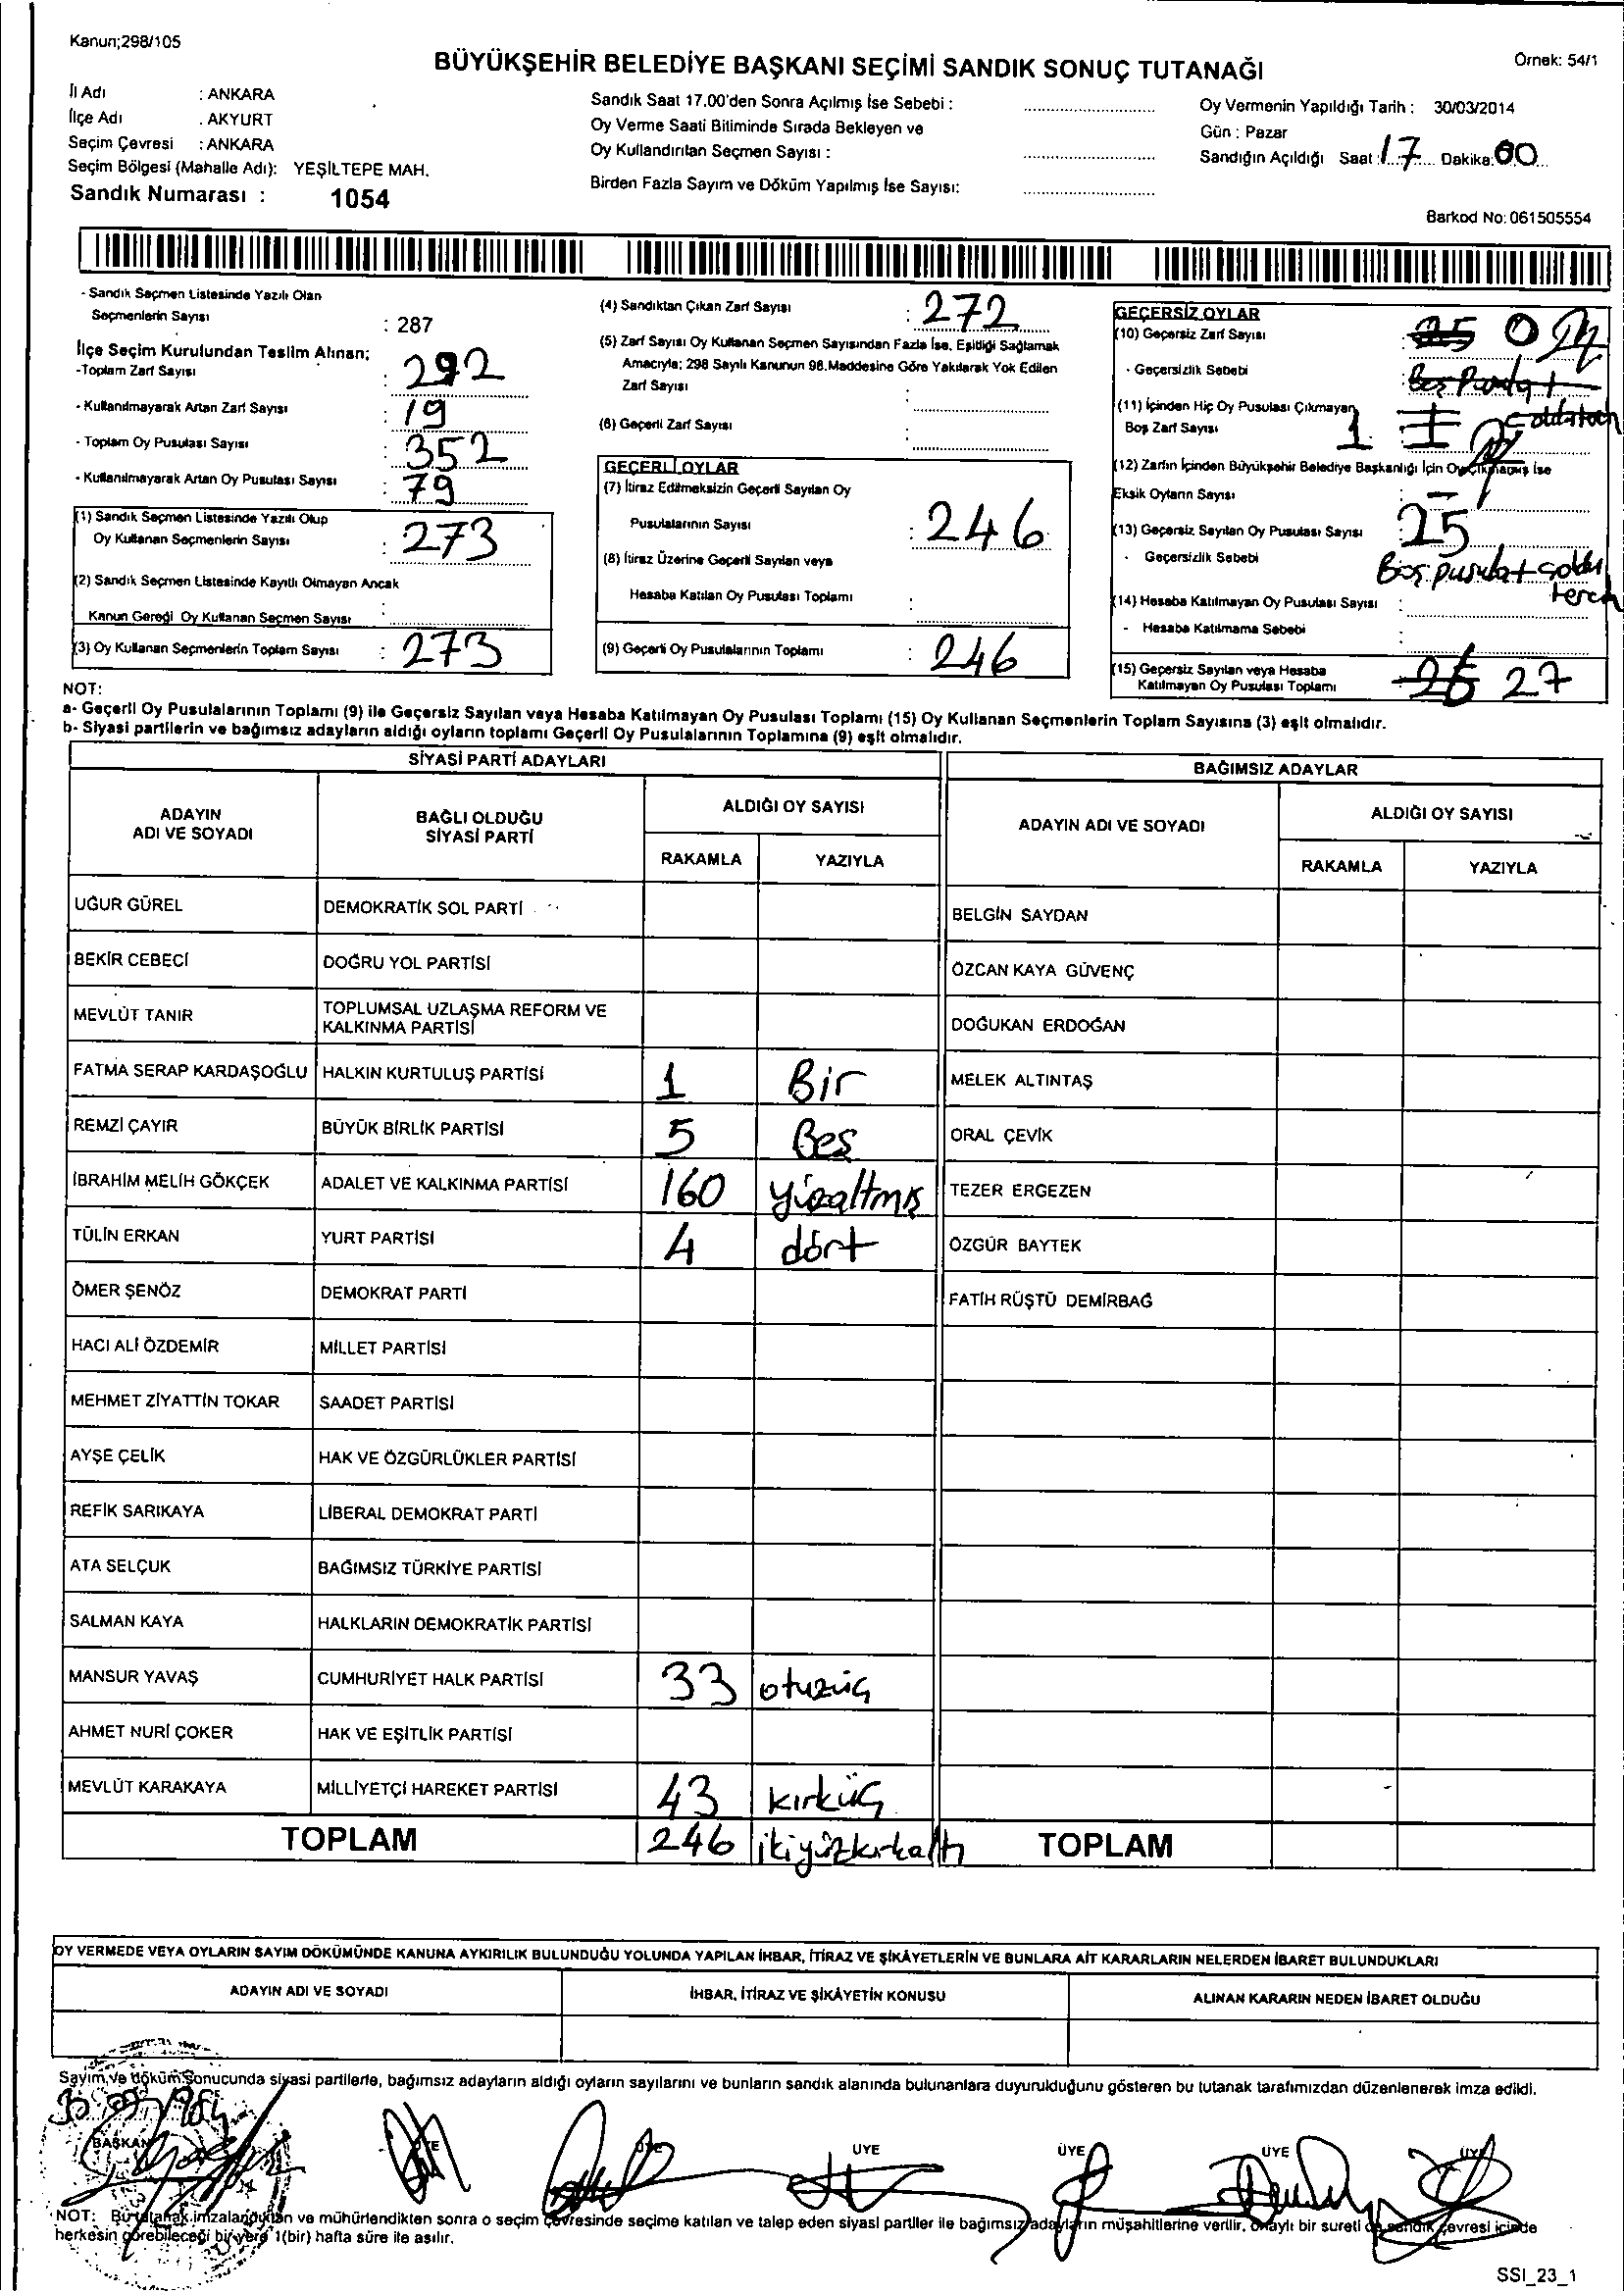 Kanun;298/105
BÜYÜKŞEHİR BELEDİYE BAŞKANI SEÇİMİ SANDIK SONUÇ TUTANAĞI
Örnek: 54/1
İl Adı : ANKARA
İlçe Adı . AKYURT
Seçim Çevresi : ANKARA
Seçim Bölgesi (Mahalle Adı): YEŞİLTEPE MAH.
Sandık Numarası : 1054
Sandık Saat 17.00'den Sonra Açılmış İse Sebebi :
Oy Verme Saati Bitiminde Sırada Bekleyen ve
Oy Kullandırılan Seçmen Sayısı :
Birden Fazla Sayım ve Döküm Yapılmış İse Sayısı:
Oy Vermenin Yapıldığı Tarih : 30/03/2014
Gün : Pazar
Sandığın Açıldığı Saat : 17 Dakika: 00
Barkod No: 061505554
- Sandık Seçmen Listesinde Yazılı Olan
Seçmenlerin Sayısı : 287
İlçe Seçim Kurulundan Teslim Alınan;
-Toplam Zarf Sayısı : 292
- Kullanılmayarak Artan Zarf Sayısı : 19
- Toplam Oy Pusulası Sayısı : 352
- Kullanılmayarak Artan Oy Pusulası Sayısı : 79
(1) Sandık Seçmen Listesinde Yazılı Olup
Oy Kullanan Seçmenlerin Sayısı : 273
(2) Sandık Seçmen Listesinde Kayıtlı Olmayan Ancak
Kanun Gereği Oy Kullanan Seçmen Sayısı :
(3) Oy Kullanan Seçmenlerin Toplam Sayısı : 273
(4) Sandıktan Çıkan Zarf Sayısı : 272
(5) Zarf Sayısı Oy Kullanan Seçmen Sayısından Fazla İse, Eşitliği Sağlamak
Amacıyla; 298 Sayılı Kanunun 98.Maddesine Göre Yakılarak Yok Edilen
Zarf Sayısı :
(6) Geçerli Zarf Sayısı :
GEÇERLİ OYLAR
(7) İtiraz Edilmeksizin Geçerli Sayılan Oy
Pusulalarının Sayısı : 246
(8) İtiraz Üzerine Geçerli Sayılan veya
Hesaba Katılan Oy Pusulası Toplamı :
(9) Geçerli Oy Pusulalarının Toplamı : 246
GEÇERSİZ OYLAR
(10) Geçersiz Zarf Sayısı : 25 0
- Geçersizlik Sebebi : Boş Pusula +
(11) İçinden Hiç Oy Pusulası Çıkmayan
Boş Zarf Sayısı : 1
(12) Zarfın İçinden Büyükşehir Belediye Başkanlığı İçin Oy Çıkmamış İse
Eksik Oyların Sayısı : -
(13) Geçersiz Sayılan Oy Pusulası Sayısı : 25
- Geçersizlik Sebebi Boş pusula + çoklu
tercih
(14) Hesaba Katılmayan Oy Pusulası Sayısı :
- Hesaba Katılmama Sebebi :
(15) Geçersiz Sayılan veya Hesaba
Katılmayan Oy Pusulası Toplamı : 26 27
NOT:
a- Geçerli Oy Pusulalarının Toplamı (9) ile Geçersiz Sayılan veya Hesaba Katılmayan Oy Pusulası Toplamı (15) Oy Kullanan Seçmenlerin Toplam Sayısına (3) eşit olmalıdır.
b- Siyasi partilerin ve bağımsız adayların aldığı oyların toplamı Geçerli Oy Pusulalarının Toplamına (9) eşit olmalıdır.
SİYASİ PARTİ ADAYLARI
ADAYIN ADI VE SOYADI
BAĞLI OLDUĞU SİYASİ PARTİ
ALDIĞI OY SAYISI
RAKAMLA YAZIYLA
UĞUR GÜREL DEMOKRATİK SOL PARTİ
BEKİR CEBECİ DOĞRU YOL PARTİSİ
MEVLÜT TANIR TOPLUMSAL UZLAŞMA REFORM VE
KALKINMA PARTİSİ
FATMA SERAP KARDAŞOĞLU HALKIN KURTULUŞ PARTİSİ 1 Bir
REMZİ ÇAYIR BÜYÜK BİRLİK PARTİSİ 5 Beş
İBRAHİM MELİH GÖKÇEK ADALET VE KALKINMA PARTİSİ 160 yüzaltmış
TÜLİN ERKAN YURT PARTİSİ 4 dört
ÖMER ŞENÖZ DEMOKRAT PARTİ
HACI ALİ ÖZDEMİR MİLLET PARTİSİ
MEHMET ZİYATTİN TOKAR SAADET PARTİSİ
AYŞE ÇELİK HAK VE ÖZGÜRLÜKLER PARTİSİ
REFİK SARIKAYA LİBERAL DEMOKRAT PARTİ
ATA SELÇUK BAĞIMSIZ TÜRKİYE PARTİSİ
SALMAN KAYA HALKLARIN DEMOKRATİK PARTİSİ
MANSUR YAVAŞ CUMHURİYET HALK PARTİSİ 33 otuzüç
AHMET NURİ ÇOKER HAK VE EŞİTLİK PARTİSİ
MEVLÜT KARAKAYA MİLLİYETÇİ HAREKET PARTİSİ 43 kırküç
TOPLAM 246 ikiyüzkırkaltı
BAĞIMSIZ ADAYLAR
ADAYIN ADI VE SOYADI
ALDIĞI OY SAYISI
RAKAMLA YAZIYLA
BELGİN SAYDAN
ÖZCAN KAYA GÜVENÇ
DOĞUKAN ERDOĞAN
MELEK ALTINTAŞ
ORAL ÇEVİK
TEZER ERGEZEN
ÖZGÜR BAYTEK
FATİH RÜŞTÜ DEMİRBAĞ
TOPLAM
OY VERMEDE VEYA OYLARIN SAYIM DÖKÜMÜNDE KANUNA AYKIRILIK BULUNDUĞU YOLUNDA YAPILAN İHBAR, İTİRAZ VE ŞİKÂYETLERİN VE BUNLARA AİT KARARLARIN NELERDEN İBARET BULUNDUKLARI
ADAYIN ADI VE SOYADI
İHBAR, İTİRAZ VE ŞİKÂYETİN KONUSU
ALINAN KARARIN NEDEN İBARET OLDUĞU
Sayım ve döküm Sonucunda siyasi partilerle, bağımsız adayların aldığı oyların sayılarını ve bunların sandık alanında bulunanlara duyurulduğunu gösteren bu tutanak tarafımızdan düzenlenerek imza edildi.
BAŞKAN ÜYE ÜYE ÜYE ÜYE ÜYE ÜYE
NOT: Bu tutanak imzalandıktan ve mühürlendikten sonra o seçim çevresinde seçime katılan ve talep eden siyasi partiler ile bağımsız adayların müşahitlerine verilir, onaylı bir sureti de sandık çevresi içinde
herkesin görebileceği bir yere 1(bir) hafta süre ile asılır.
SSI_23_1